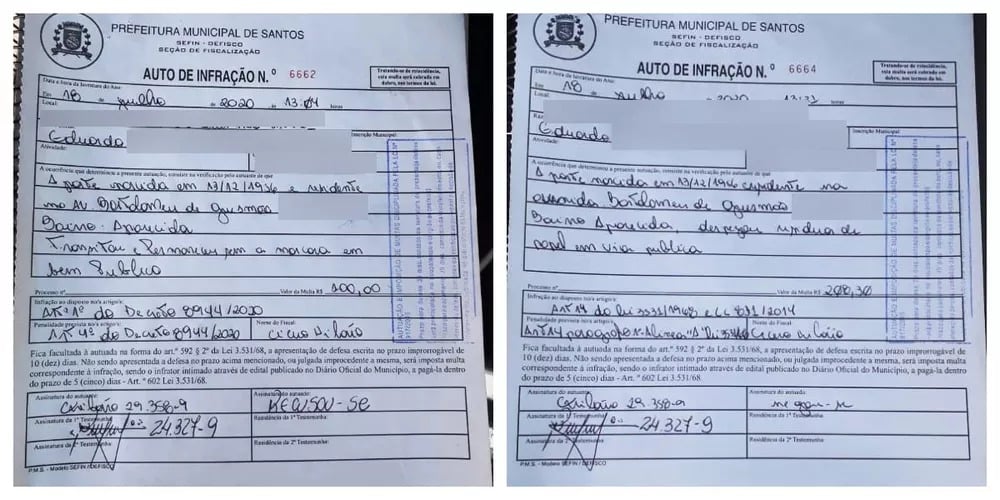 PREFEITURA MUNICIPAL DE SANTOS
SEFIN - DEFISCO
SEÇÃO DE FISCALIZAÇÃO
AUTO DE INFRAÇÃO N.º 6662
Tratando-se de reincidência, esta multa será cobrada em dobro, nos termos da lei.
Data e hora da lavratura do Ato:
Em 18 de julho de 2020 13:04 horas
Local:
Inscrição Municipal:
Eduardo
Atividade:
A ocorrência que determinou a presente autuação, consiste na verificação pelo autuante de que
A parte nascida em 13/12/1956 e residente
na Av Bartolomeu de Gusmão
Bairro: Aparecida
Transitou e Permaneceu sem a mascara em
bem Publico
Processo nº Valor da Multa R$ 100,00
Infração ao disposto no/s artigo/s:
Artº 1º do Decreto 8944/2020
Penalidade prevista no/s artigo/s: Nome do Fiscal:
Art. 4º do Decreto 8944/2020 Cicero Hilário
Fica facultada à autuada na forma do art. 592 § 2º da Lei 3.531/68, a apresentação de defesa escrita no prazo improrrogável de
10 (dez) dias. Não sendo apresentada a defesa no prazo acima mencionado, ou julgada improcedente a mesma, será imposta multa
correspondente à infração, sendo o infrator intimado através de edital publicado no Diário Oficial do Município, a pagá-la dentro
do prazo de 5 (cinco) dias - Art. º 602 Lei 3.531/68.
Assinatura do autuante: Assinatura do autuado:
29.358-9 RECUSOU-SE
Assinatura da 1ª Testemunha: Residência da 1ª Testemunha:
24.327-9
Assinatura da 2ª Testemunha: Residência da 2ª Testemunha:
P.M.S. - Modelo SEFIN / DEFISCO
PREFEITURA MUNICIPAL DE SANTOS
SEFIN - DEFISCO
SEÇÃO DE FISCALIZAÇÃO
AUTO DE INFRAÇÃO N.º 6664
Tratando-se de reincidência, esta multa será cobrada em dobro, nos termos da lei.
Data e hora da lavratura do Ato:
Em 18 de julho de 2020 horas
Local:
Inscrição Municipal:
Eduardo
Atividade:
A ocorrência que determinou a presente autuação, consiste na verificação pelo autuante de que
A parte nascida em 13/12/1956 e residente na
avenida Bartolomeu de Gusmão
Bairro Aparecida, despejou residuo de
papel em via publica
Processo nº Valor da Multa R$ 208,30
Infração ao disposto no/s artigo/s:
Art 14 do lei 3531/1968 e LC 831/2014
Penalidade prevista no/s artigo/s: Nome do Fiscal:
Cicero Hilário
Fica facultada à autuada na forma do art. 592 § 2º da Lei 3.531/68, a apresentação de defesa escrita no prazo improrrogável de
10 (dez) dias. Não sendo apresentada a defesa no prazo acima mencionado, ou julgada improcedente a mesma, será imposta multa
correspondente à infração, sendo o infrator intimado através de edital publicado no Diário Oficial do Município, a pagá-la dentro
do prazo de 5 (cinco) dias - Art. º 602 Lei 3.531/68.
Assinatura do autuante: Assinatura do autuado:
29.358-9
Assinatura da 1ª Testemunha: Residência da 1ª Testemunha:
24.327-9
Assinatura da 2ª Testemunha: Residência da 2ª Testemunha:
P.M.S. - Modelo SEFIN / DEFISCO